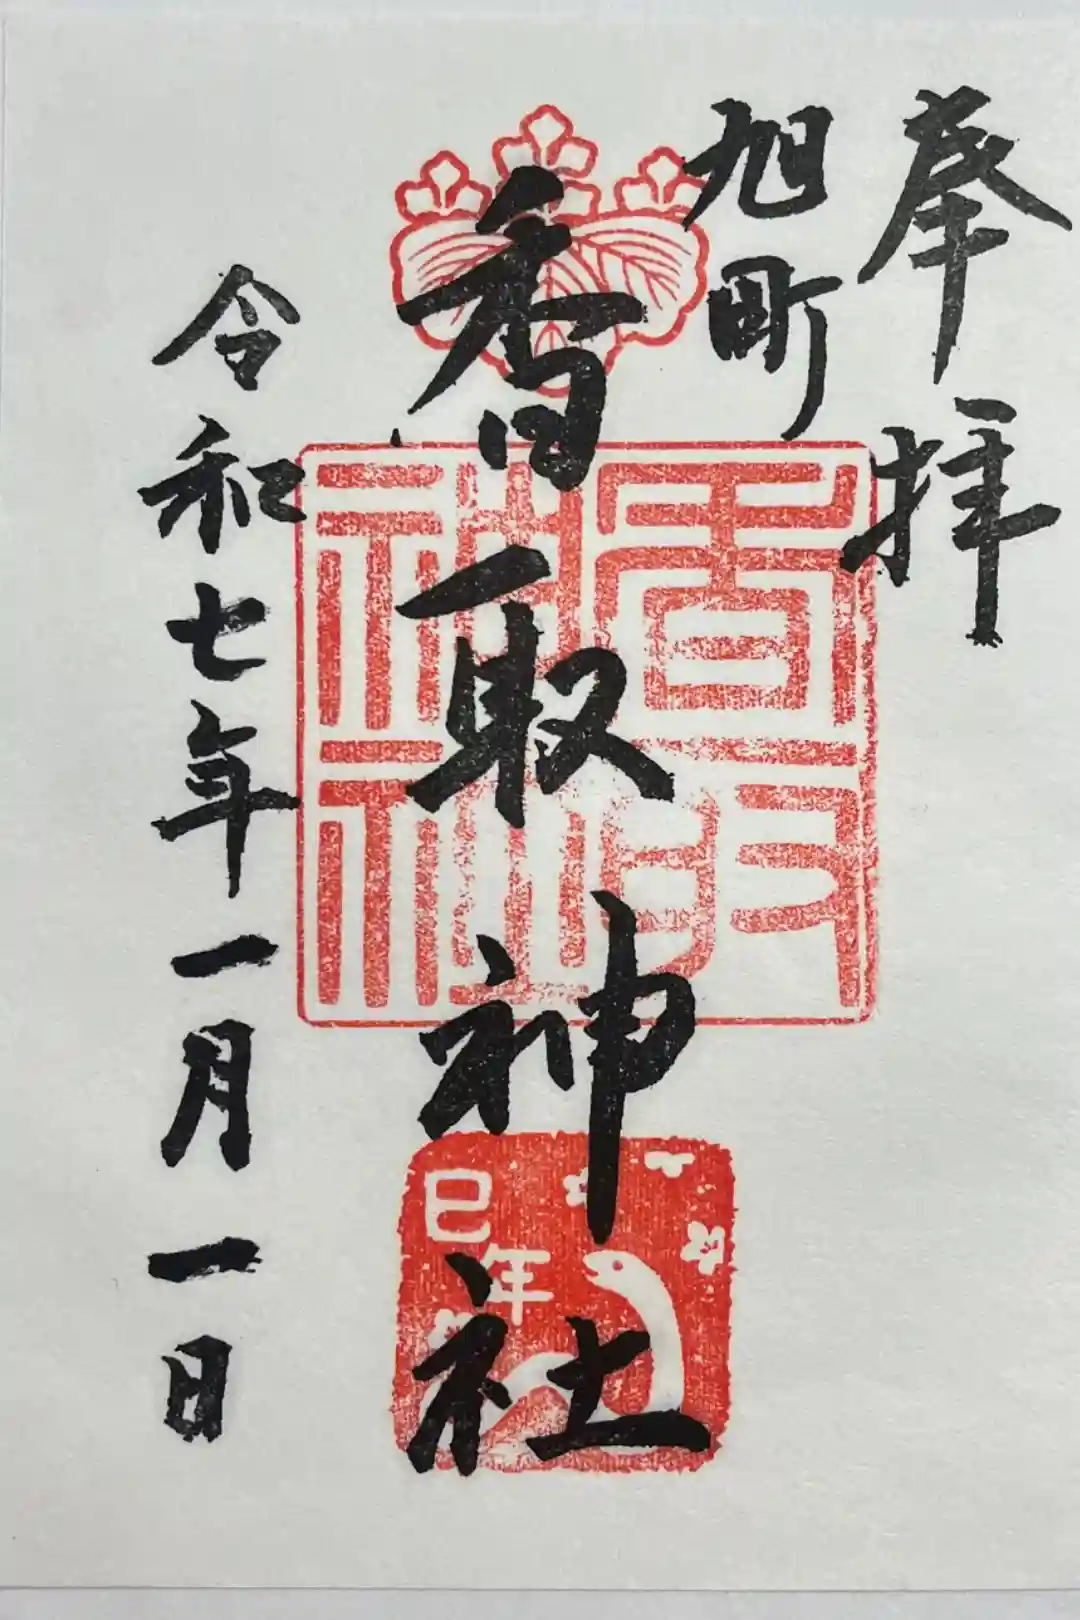 奉拝
旭町
香取神社
香取
神社
巳年
令和七年一月一日